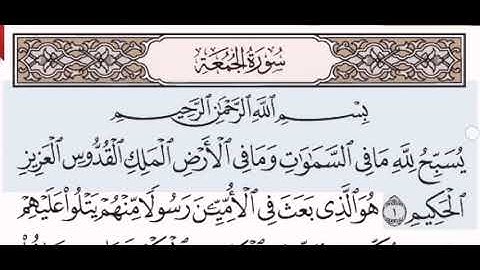 سُورَةُ الجُمُعَةِ
بِسْمِ اللَّهِ الرَّحْمَٰنِ الرَّحِيمِ
يُسَبِّحُ لِلَّهِ مَا فِى السَّمَٰوَٰتِ وَمَا فِى الْأَرْضِ الْمَلِكِ الْقُدُّوسِ الْعَزِيزِ
الْحَكِيمِ ١ هُوَ الَّذِى بَعَثَ فِى الْأُمِّيِّـۧنَ رَسُولًا مِّنْهُمْ يَتْلُوا۟ عَلَيْهِمْ